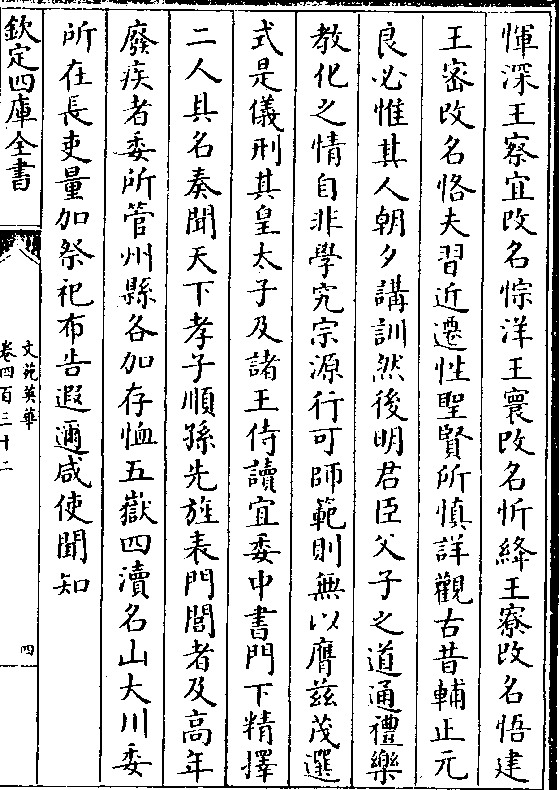 惲深王察宜改名悰洋王寰改名忻絳王寮改名悟建
王審改名恪夫習近遷性聖賢所慎詳觀古昔輔正元
良必惟其人朝夕講訓然後明君臣父子之道通禮樂
教化之情自非學究宗源行可師範則無以膺兹茂選
式是儀刑其皇太子及諸王侍讀宜委中書門下精擇
二人具名奏聞天下孝子順孫先旌表門閭者及高年
廢疾者委所管州縣各加存恤五嶽四瀆名山大川委
所在長吏量加祭祀布告遐邇咸使聞知
欽定四庫全書
文苑英華
卷四百三十二
四